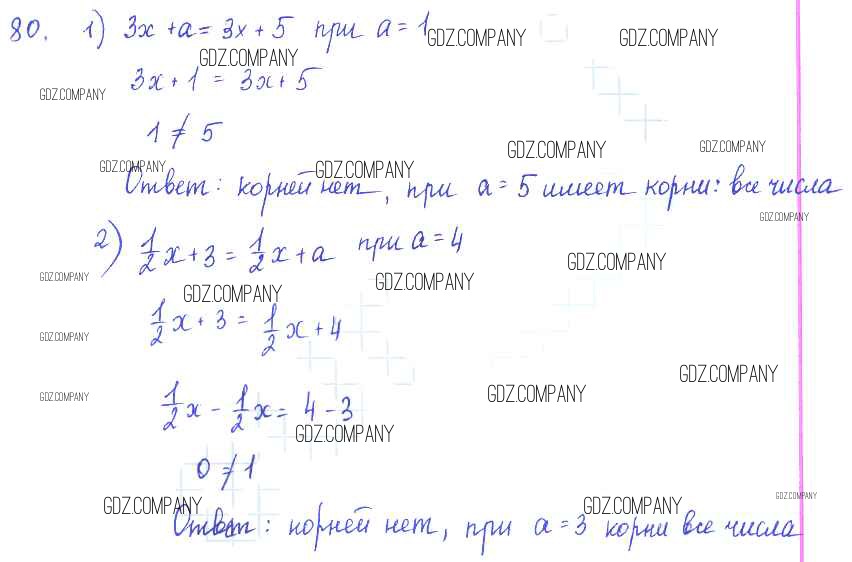 80. 1) 3x + a = 3x + 5 при a = 1
GDZ.COMPANY GDZ.COMPANY
GDZ.COMPANY
3x + 1 = 3x + 5
GDZ.COMPANY
1 ≠ 5
GDZ.COMPANY GDZ.COMPANY
GDZ.COMPANY GDZ.COMPANY
Ответ: корней нет, при a = 5 имеет корни: все числа
GDZ.COMPANY
2) 1/2 x + 3 = 1/2 x + a при a = 4
GDZ.COMPANY
GDZ.COMPANY GDZ.COMPANY GDZ.COMPANY
1/2 x + 3 = 1/2 x + 4
GDZ.COMPANY
GDZ.COMPANY
GDZ.COMPANY GDZ.COMPANY
1/2 x - 1/2 x = 4 - 3
GDZ.COMPANY
0 ≠ 1
GDZ.COMPANY GDZ.COMPANY GDZ.COMPANY
Ответ: корней нет, при a = 3 корни все числа